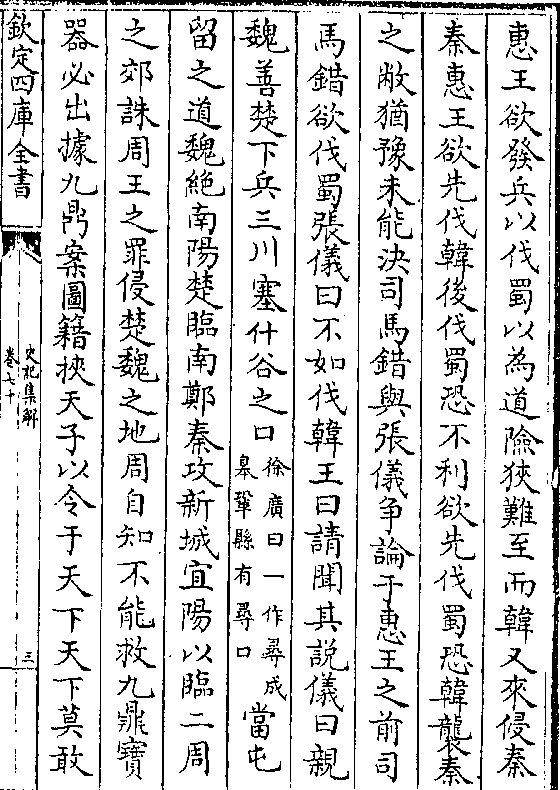 惠王欲發兵以伐蜀以為道險狹難至而韓又來侵秦
秦惠王欲先伐韓後伐蜀恐不利欲先伐蜀恐韓襲秦
之敝猶豫未能決司馬錯與張儀爭論于惠王之前司
馬錯欲伐蜀張儀曰不如伐韓王曰請聞其說儀曰親
魏善楚下兵三川塞什谷之口徐廣曰一作尋成臯鞏縣有尋口當屯
留之道魏絶南陽楚臨南鄭秦攻新城宜陽以臨二周
之郊誅周王之罪侵楚魏之地周自知不能救九鼎寶
器必出據九鼎案圖籍挾天子以令于天下天下莫敢
欽定四庫全書
史記集解
卷七十
三